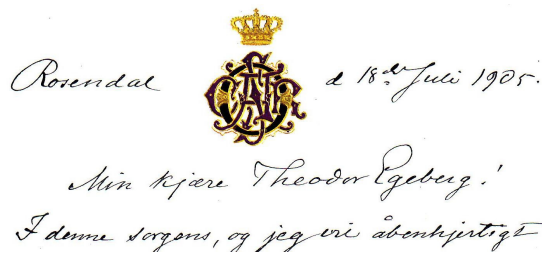 Rosendal d 18de Juli 1905.
Min kjære Theodor Egeberg!
I denne sorgens, og jeg vil åbenhjertigt